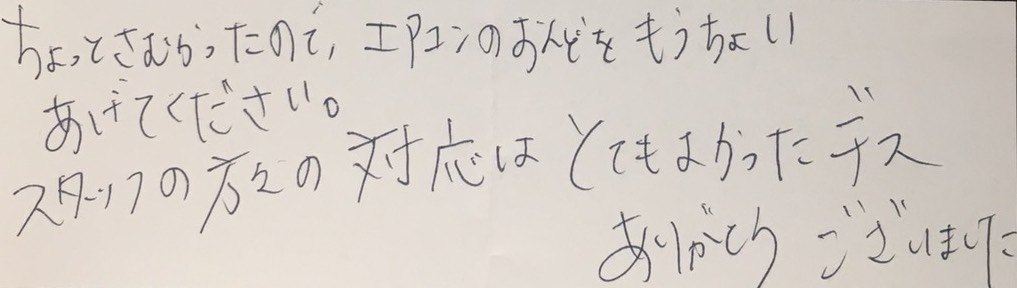 ちょっとさむかったので, エアコンのおんどをもうちょい
あげてください。
スタッフの方々の対応はとてもよかったデス
ありがとうございました